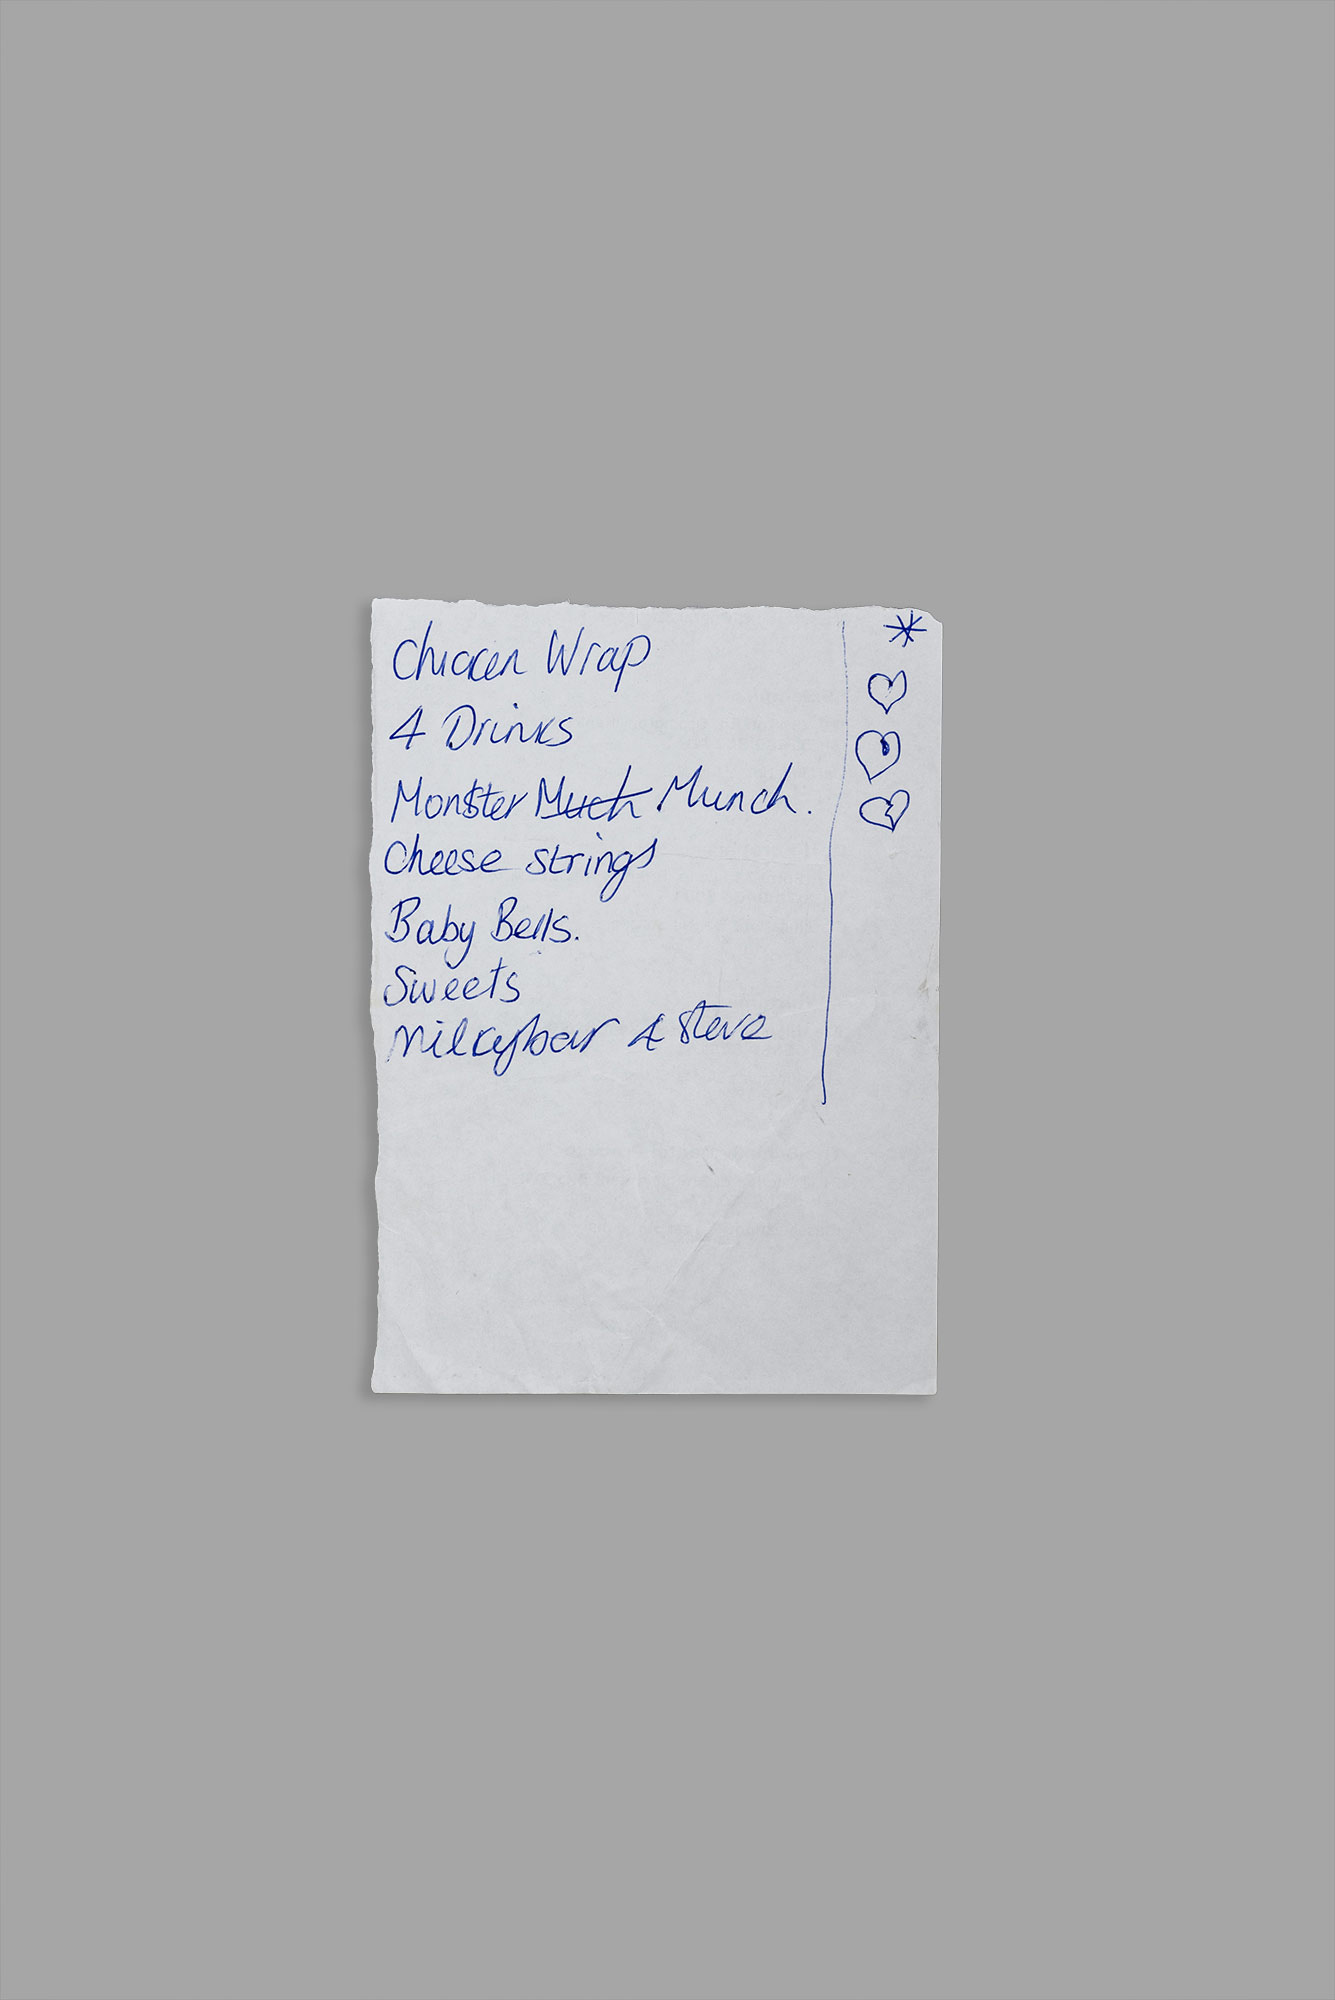 Chicken Wrap
4 Drinks
Monster Much Munch.
Cheese strings
Baby Bells.
Sweets
Milkybar 4 Steve